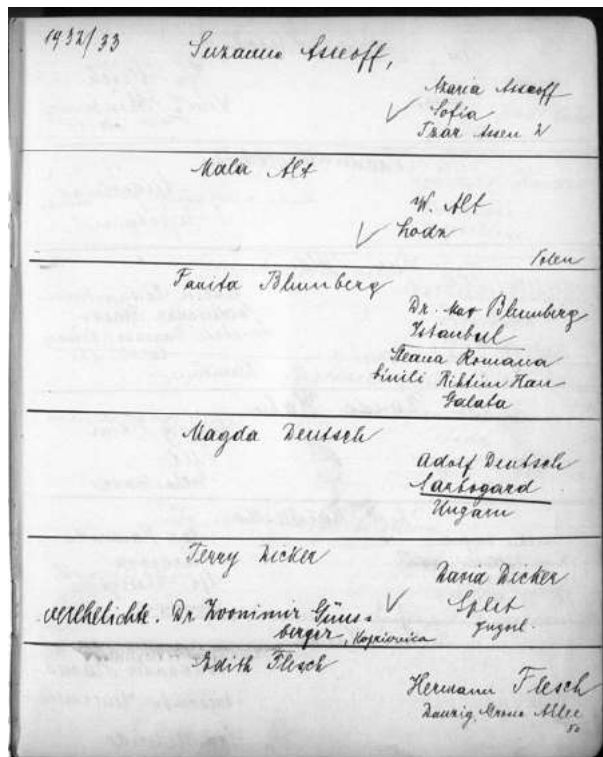 1932/33
Suzanne Asseoff,
Maria Asseoff
Sofia
Tzar Assen 2
Mala Alt
W. Alt
Lodz
Polen
Fanita Blumberg
Dr. Max Blumberg
Istanbul
Steana Romana
Rihtim Han
Galata
Magda Deutsch
Adolf Deutsch
Sarbogard
Ungarn
Terry Dicker
David Dicker
Split
Jugosl.
verehelichte. Dr. Zvonimir Güns-
berger, Koprivnica
Edith Flesch
Hermann Flesch
Danzig, Grosse Allee